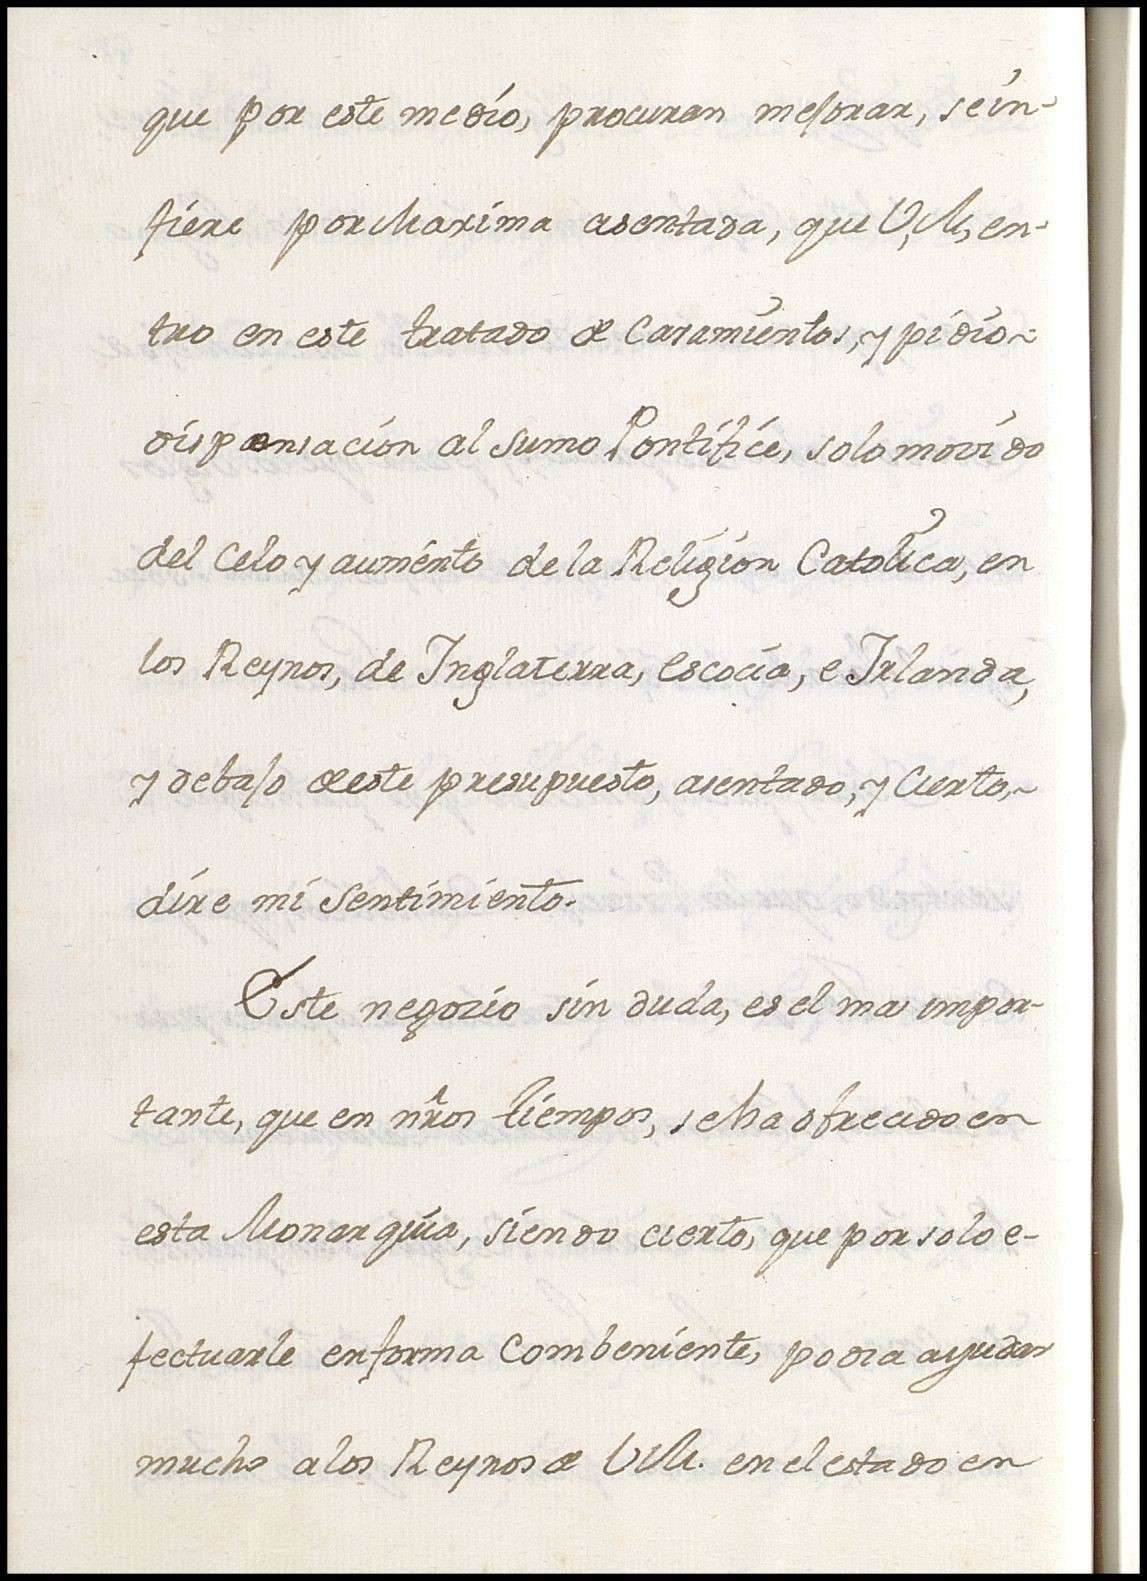 que por este medio, procuran mejorar, se in-
fiere por Maxima asentada, que V,M, en-
tro en este tratado de Casamientos, y pidio~
dispensacion al Sumo Pontifice, solo movido
del Celo y aumento de la Religion Catolica, en
los Reynos, de Inglaterra, Escocia, e Irlanda,
y debajo de este presupuesto, asentado, y Cierto,~
dire mi Sentimiento.
Este negozio sin duda, es el mas impor-
tante, que en nr̃os tiempos, se ha ofrecido en
esta Monarquia, siendo cierto, que por solo e-
fectuarle en forma Combeniente, podra ayudar
mucho a los Reynos de VM. en el estado en